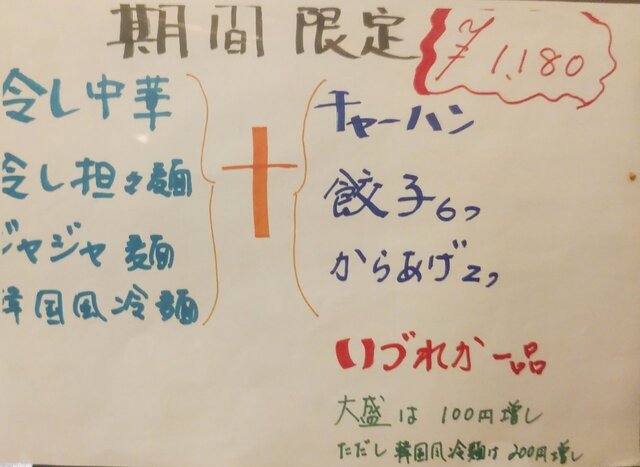 期間限定
¥1,180
冷し中華
冷し担々麺
ジャジャ麺
韓国風冷麺
+
チャーハン
餃子6つ
からあげ2つ
いづれか一品
大盛は100円増し
ただし韓国風冷麺は200円増し